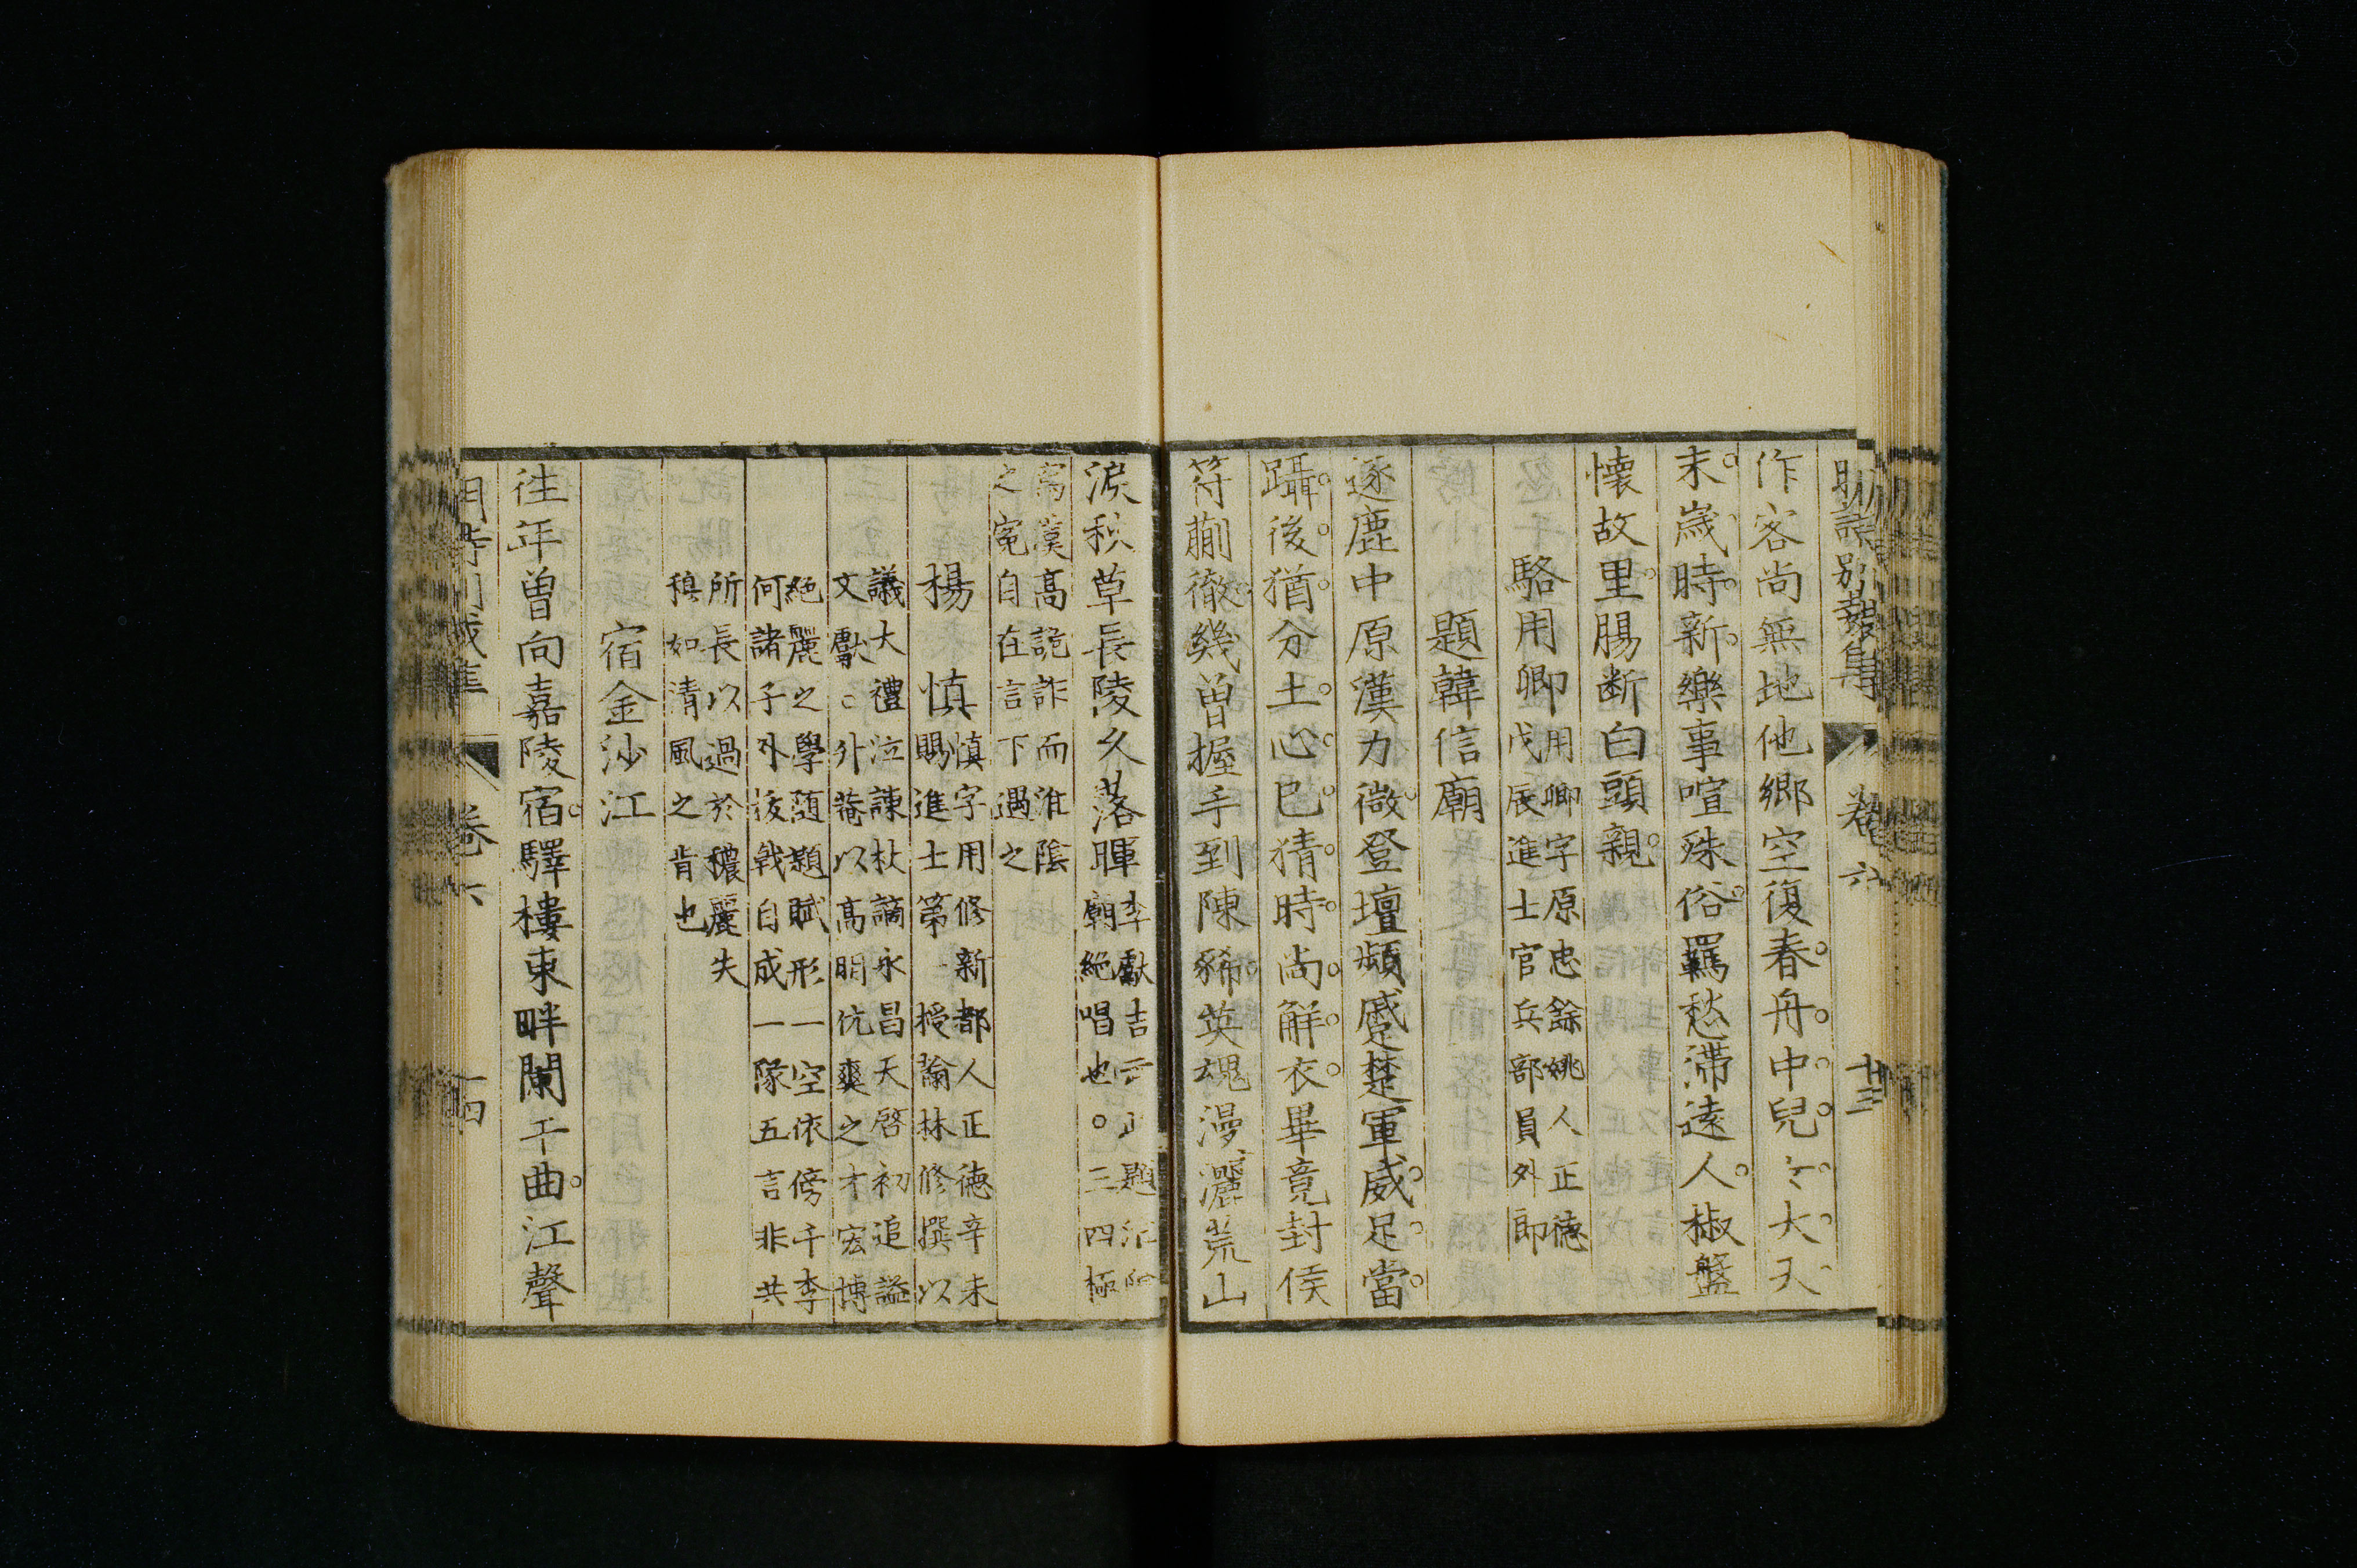 明詩別裁集 卷六 十三
作客尚無地他鄉空復春舟中兒〻大天
末歲時新樂事喧殊俗羈愁滯遠人椒盤
懷故里腸断白頭親
駱用卿 用卿字原忠餘姚人正德
戊辰進士官兵部員外郎
題韓信廟
逐鹿中原漢力微登壇頻蹙楚軍威足當
躡後猶分土心已猜時尚解衣畢竟封侯
符蒯徹幾曾握手到陳豨英魂漫灑荒山
淚秋草長陵久落暉 李獻吉云 題淮陰
廟絕唱也○三四極
寫漢高詭詐而淮陰
之寃自在言下遇之
楊慎 慎字用修新都人正德辛未
賜進士第一授翰林修撰以
議大禮泣諫杖謫永昌天啓初追謚
文獻○升菴以高明伉爽之才宏博
絕麗之學隨題賦形一空依傍千李
何諸子外拔戟自成一隊五言非其
所長以過於穠麗失
穆如清風之肯也
宿金沙江
徃年曾向嘉陵宿驛樓東畔闌干曲江聲
卷六